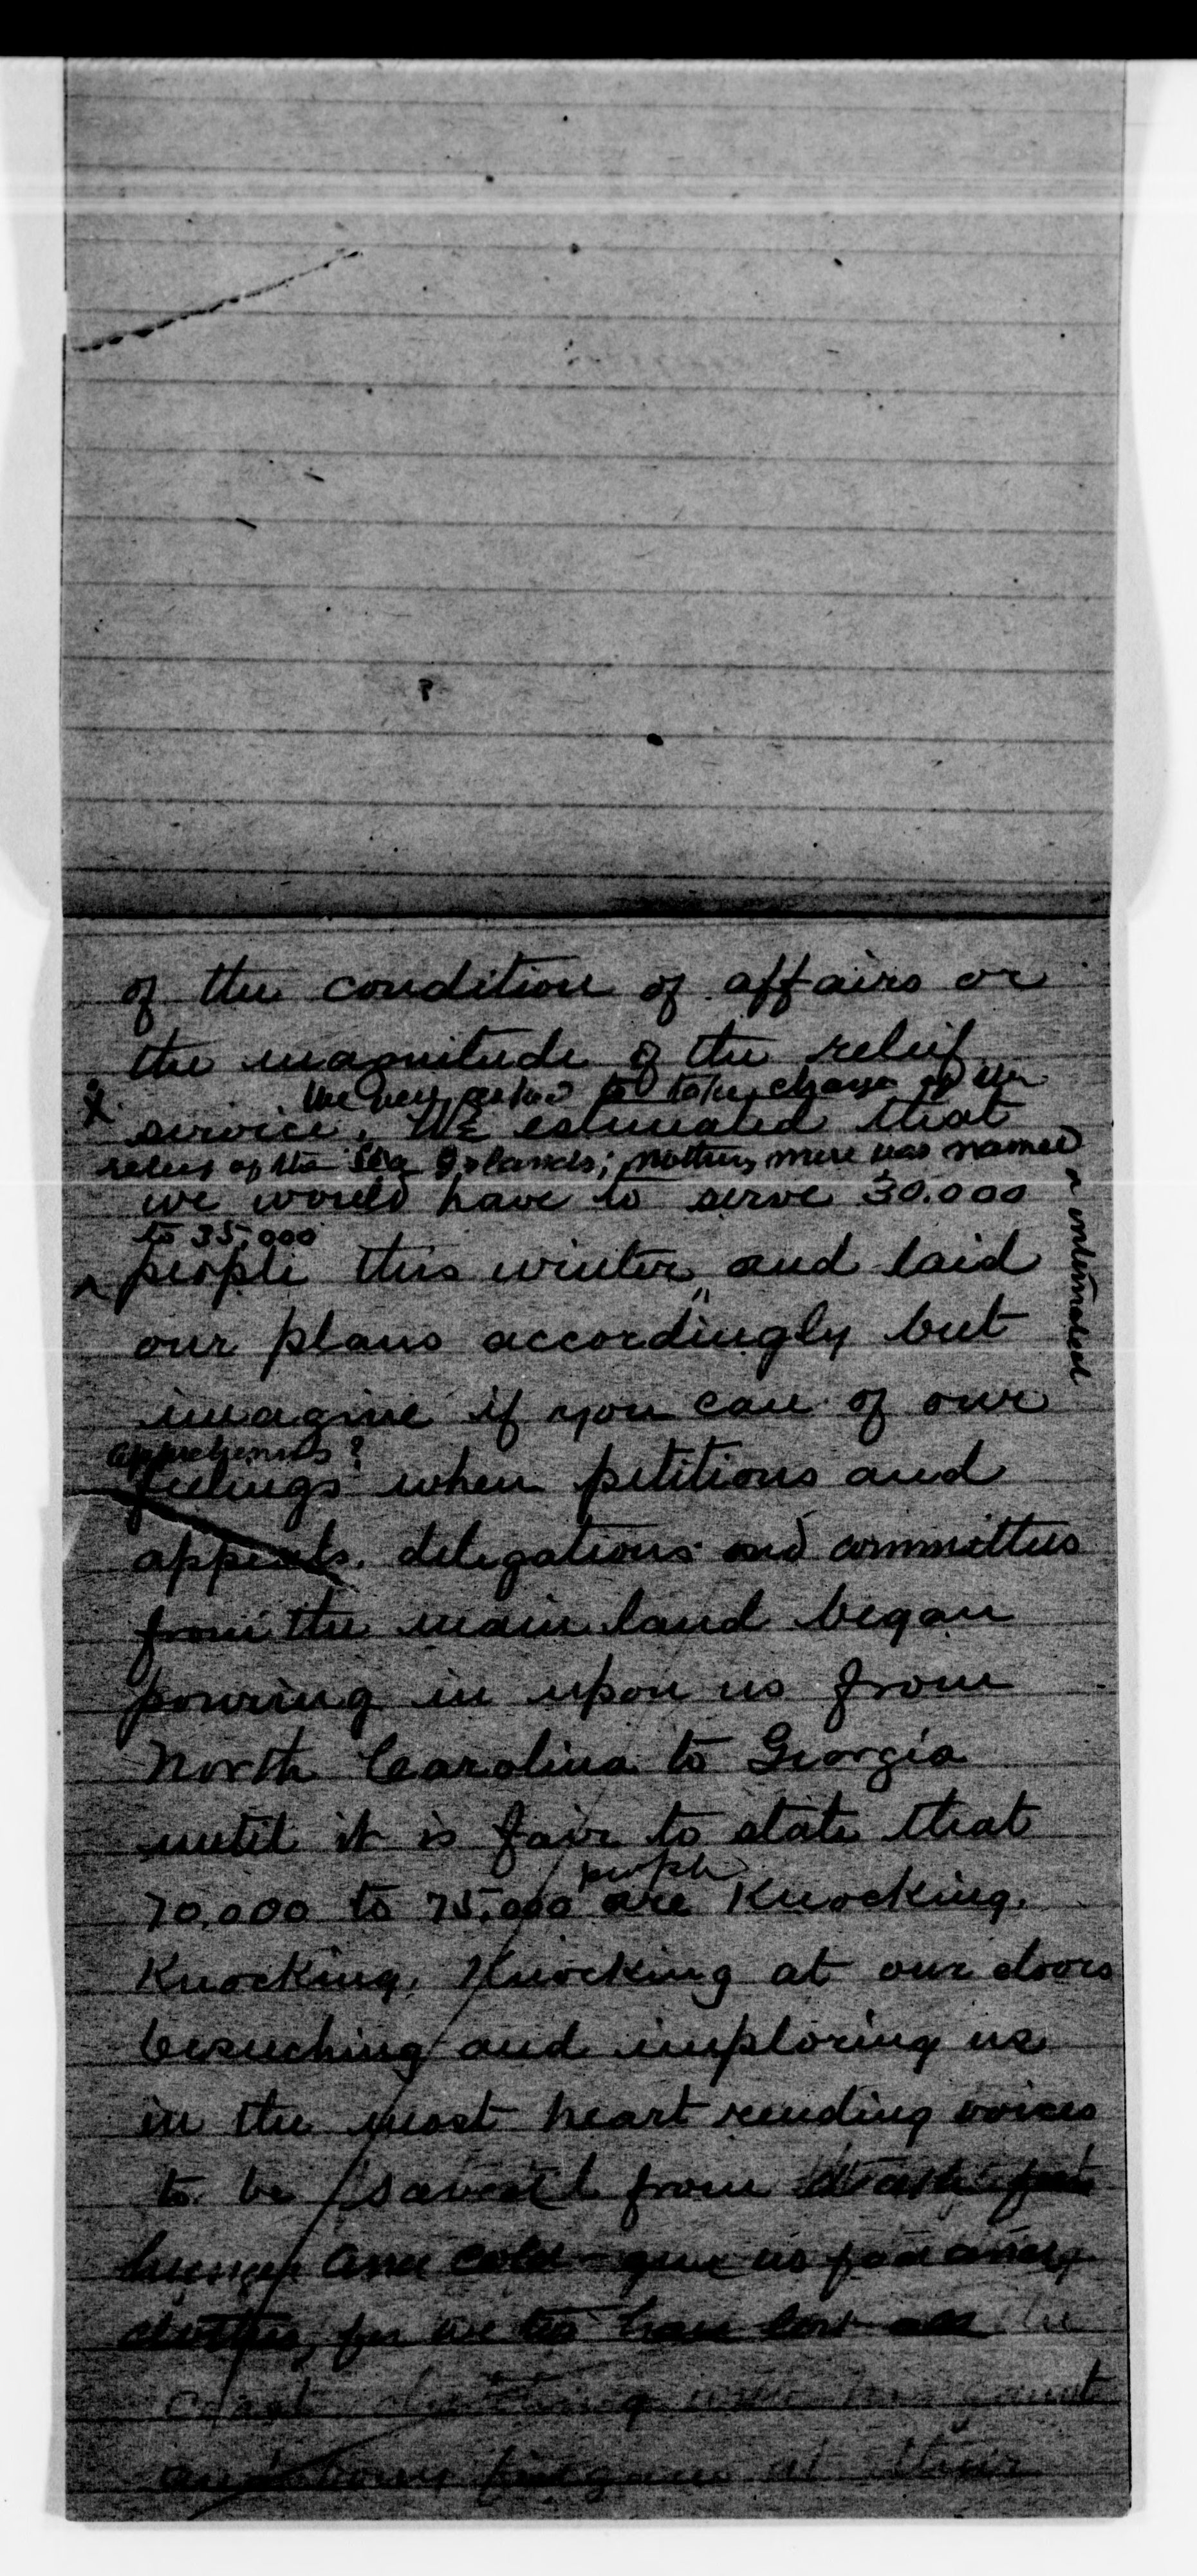 of the condition of affairs or
the magnitude of the relief
We were asked to take charge of the
service. We estimated that
relief of the Sea Islands; nothing more was named
or intimated
we would have to serve 30.000
to 35,000
people this winter, and laid
our plans accordingly but
imagine if you can of our
apprehensions?
feelings when petitions and
appeals. delegations and committees
from the main land began
pouring in upon us from
North Carolina to Georgia
until it is fair to state that
people
70,000 to 75,000 are Knocking,
Knocking, Knocking at our doors
beseeching and imploring us
in the most heart rending voices
to be saved from
hunger and cold - give us food
clothes, for we too have lost all
gaunt
at their